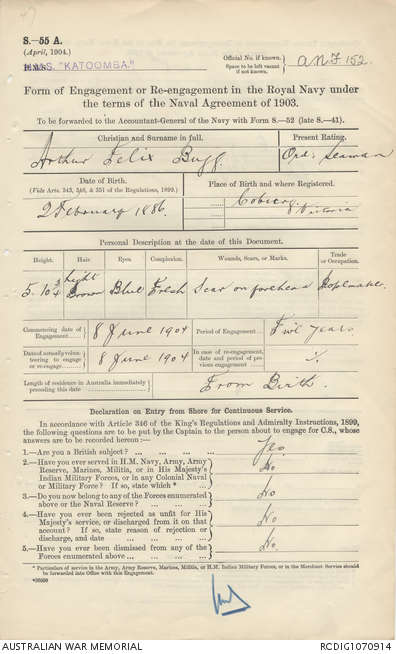 S.—55 A.
(April, 1904.)
H.M.S. "KATOOMBA."
Official No. if known.
Space to be left vacant if not known.
A.N.F 152.
Form of Engagement or Re-engagement in the Royal Navy under
the terms of the Naval Agreement of 1903.
To be forwarded to the Accountant-General of the Navy with Form S.—52 (late S.—41).
Christian and Surname in full.
Present Rating.
Arthur Felix Bugg.
Ord: Seaman
Date of Birth.
(Vide Arts. 343, 346, & 351 of the Regulations, 1899.)
Place of Birth and where Registered.
2 February 1886.
Coburg,
Victoria
Personal Description at the date of this Document.
Height. Hair. Eyes. Complexion. Wounds, Scars, or Marks. Trade or Occupation.
5. 10 3/4 Light Brown Blue Fresh Scar on forehead Ropemaker.
Commencing date of Engagement 8 June 1904 Period of Engagement Five years
Date of actually volunteering to engage or re-engage 8 June 1904 In case of re-engagement, date and period of previous engagement
Length of residence in Australia immediately preceding this date From Birth.
Declaration on Entry from Shore for Continuous Service.
In accordance with Article 346 of the King's Regulations and Admiralty Instructions, 1899,
the following questions are to be put by the Captain to the person about to engage for C.S., whose
answers are to be recorded hereon:—
1.—Are you a British subject? Yes
2.—Have you ever served in H.M. Navy, Army, Army
Reserve, Marines, Militia, or in His Majesty's
Indian Military Forces, or in any Colonial Naval
or Military Force? If so, state which * No.
3.—Do you now belong to any of the Forces enumerated
above or the Naval Reserve? No
4.—Have you ever been rejected as unfit for His
Majesty's service, or discharged from it on that
account? If so, state reason of rejection or
discharge, and date No
5.—Have you ever been dismissed from any of the
Forces enumerated above No.
* Particulars of service in the Army, Army Reserve, Marines, Militia, or H.M. Indian Military Forces, or in the Merchant Service should
be forwarded into Office with this Engagement.
AUSTRALIAN WAR MEMORIAL
RCDIG1070914